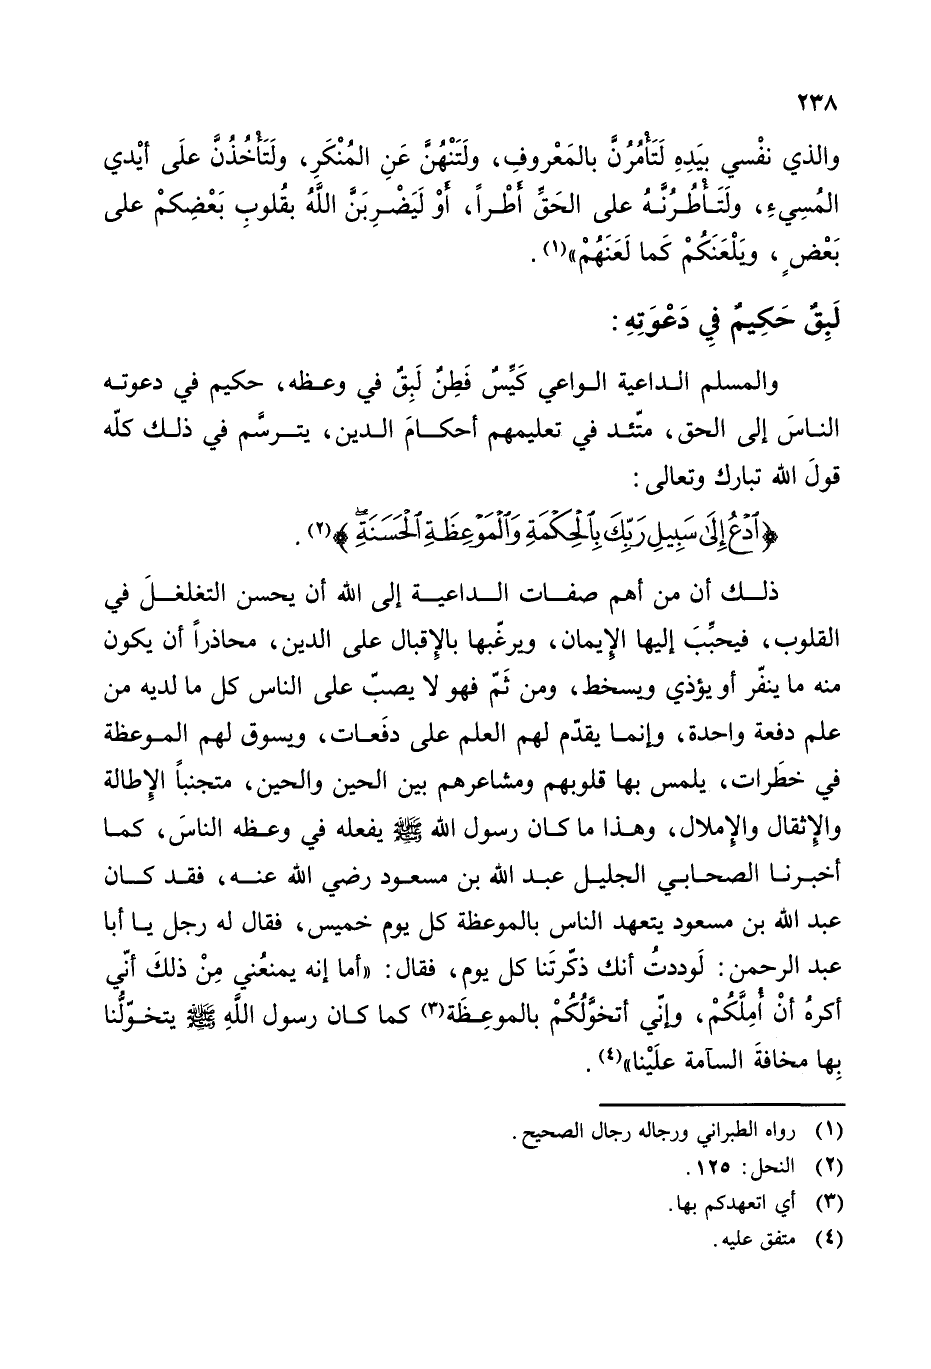 ٢٣٨
والذي نفْسي بيَدِهِ لَتَأْمُرُنَّ بالمَعْروفِ، ولَتَنْهُنَّ عَنِ المُنْكَرِ، ولَتَأْخُذُنَّ علَى أيْدي
المُسِيءِ، ولَتَأْطُرُنَّهُ على الحَقِّ أَطْراً، أَوْ لَيَضْرِبَنَّ اللَّهُ بقُلوبِ بَعْضِكمْ على
بَعْضٍ، ويَلْعَنَكُمْ كَما لَعَنَهُمْ»(١).
لَبِقٌ حَكِيمٌ فِي دَعْوَتِهِ:
والمسلم الداعية الواعي كَيِّسٌ فَطِنٌ لَبِقٌ في وعظه، حكيم في دعوته
الناسَ إلى الحق، متّئد في تعليمهم أحكامَ الدين، يترسَّم في ذلك كلّه
قولَ الله تبارك وتعالى:
﴿ٱدْعُ إِلَىٰ سَبِيلِ رَبِّكَ بِٱلْحِكْمَةِ وَٱلْمَوْعِظَةِ ٱلْحَسَنَةِۖ﴾(٢).
ذلك أن من أهم صفات الداعية إلى الله أن يحسن التغلغلَ في
القلوب، فيحبِّبَ إليها الإِيمان، ويرغّبها بالإِقبال على الدين، محاذراً أن يكون
منه ما ينفّر أو يؤذي ويسخط، ومن ثَمّ فهو لا يصبّ على الناس كل ما لديه من
علم دفعة واحدة، وإنما يقدّم لهم العلم على دفَعات، ويسوق لهم الموعظة
في خطَرات، يلمس بها قلوبهم ومشاعرهم بين الحين والحين، متجنباً الإِطالة
والإِثقال والإِملال، وهذا ما كان رسول الله ﷺ يفعله في وعظه الناسَ، كما
أخبرنا الصحابي الجليل عبد الله بن مسعود رضي الله عنه، فقد كان
عبد الله بن مسعود يتعهد الناس بالموعظة كل يوم خميس، فقال له رجل يا أبا
عبد الرحمن: لَوددتُ أنك ذكّرتَنا كل يوم، فقال: «أما إنه يمنعُني مِنْ ذلكَ أنّي
أكرهُ أنْ أُمِلَّكُمْ، وإنّي أتخوَّلُكُمْ بالموعِظَة(٣) كما كان رسول اللَّهِ ﷺ يتخوّلُنا
بِها مخافةَ السآمة علَيْنا»(٤).
(١) رواه الطبراني ورجاله رجال الصحيح.
(٢) النحل: ١٢٥.
(٣) أي اتعهدكم بها.
(٤) متفق عليه.